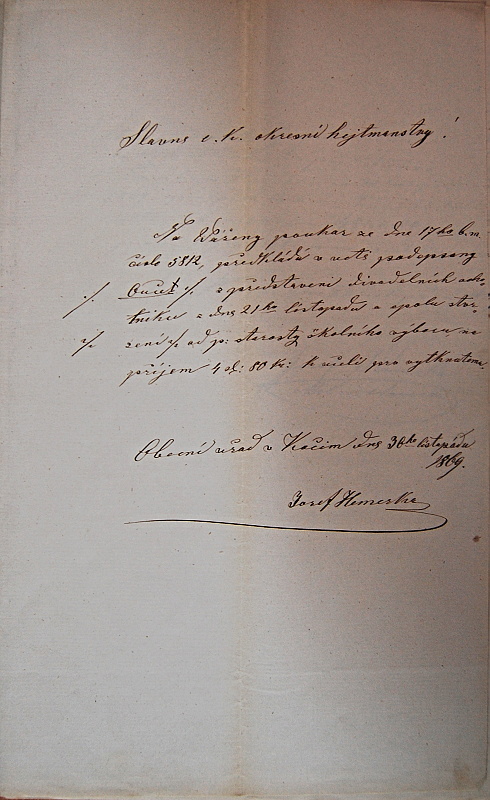 Slavné c. k. okresní hejtmanstvy!
Na Vážený poukaz ze dne 17ho b. m.
číslo 5812, předkládá v uctě podepsaný
./. Oučet ./. z představení divadelních ochot-
níků z dne 21ho listopadu a spolu stvr-
./. zení ./. od p: starosty školního výboru na
příjem 4 zl: 80 kr: k účeli pro vytknutému.
Obecní úřad v Kočím dne 30ho listopadu
1869.
Josef Hemerka